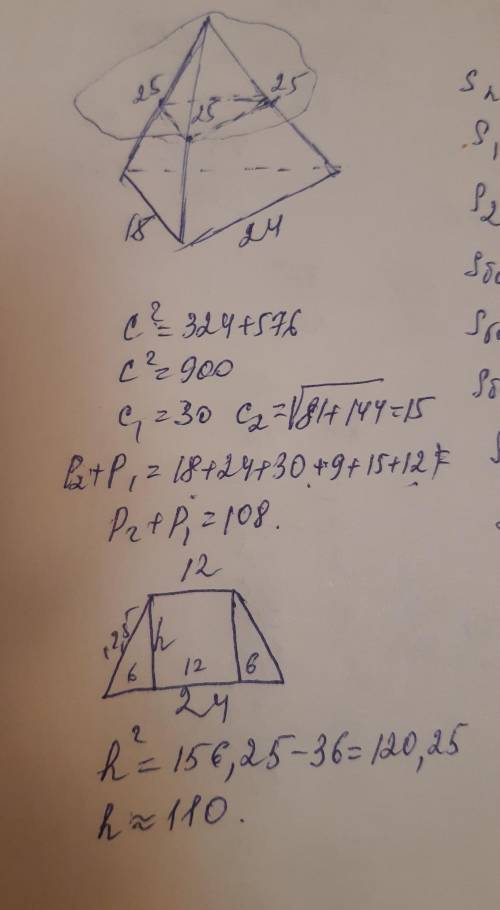 25 25
25
18 24
c² = 324+576
c² = 900
c₁ = 30 c₂ = √81+144 = 15
P₂+P₁ = 18+24+30+9+15+12 =
P₂+P₁ = 108.
12
h
6 12 6
24
h² = 156,25-36=120,25
h ≈ 110.